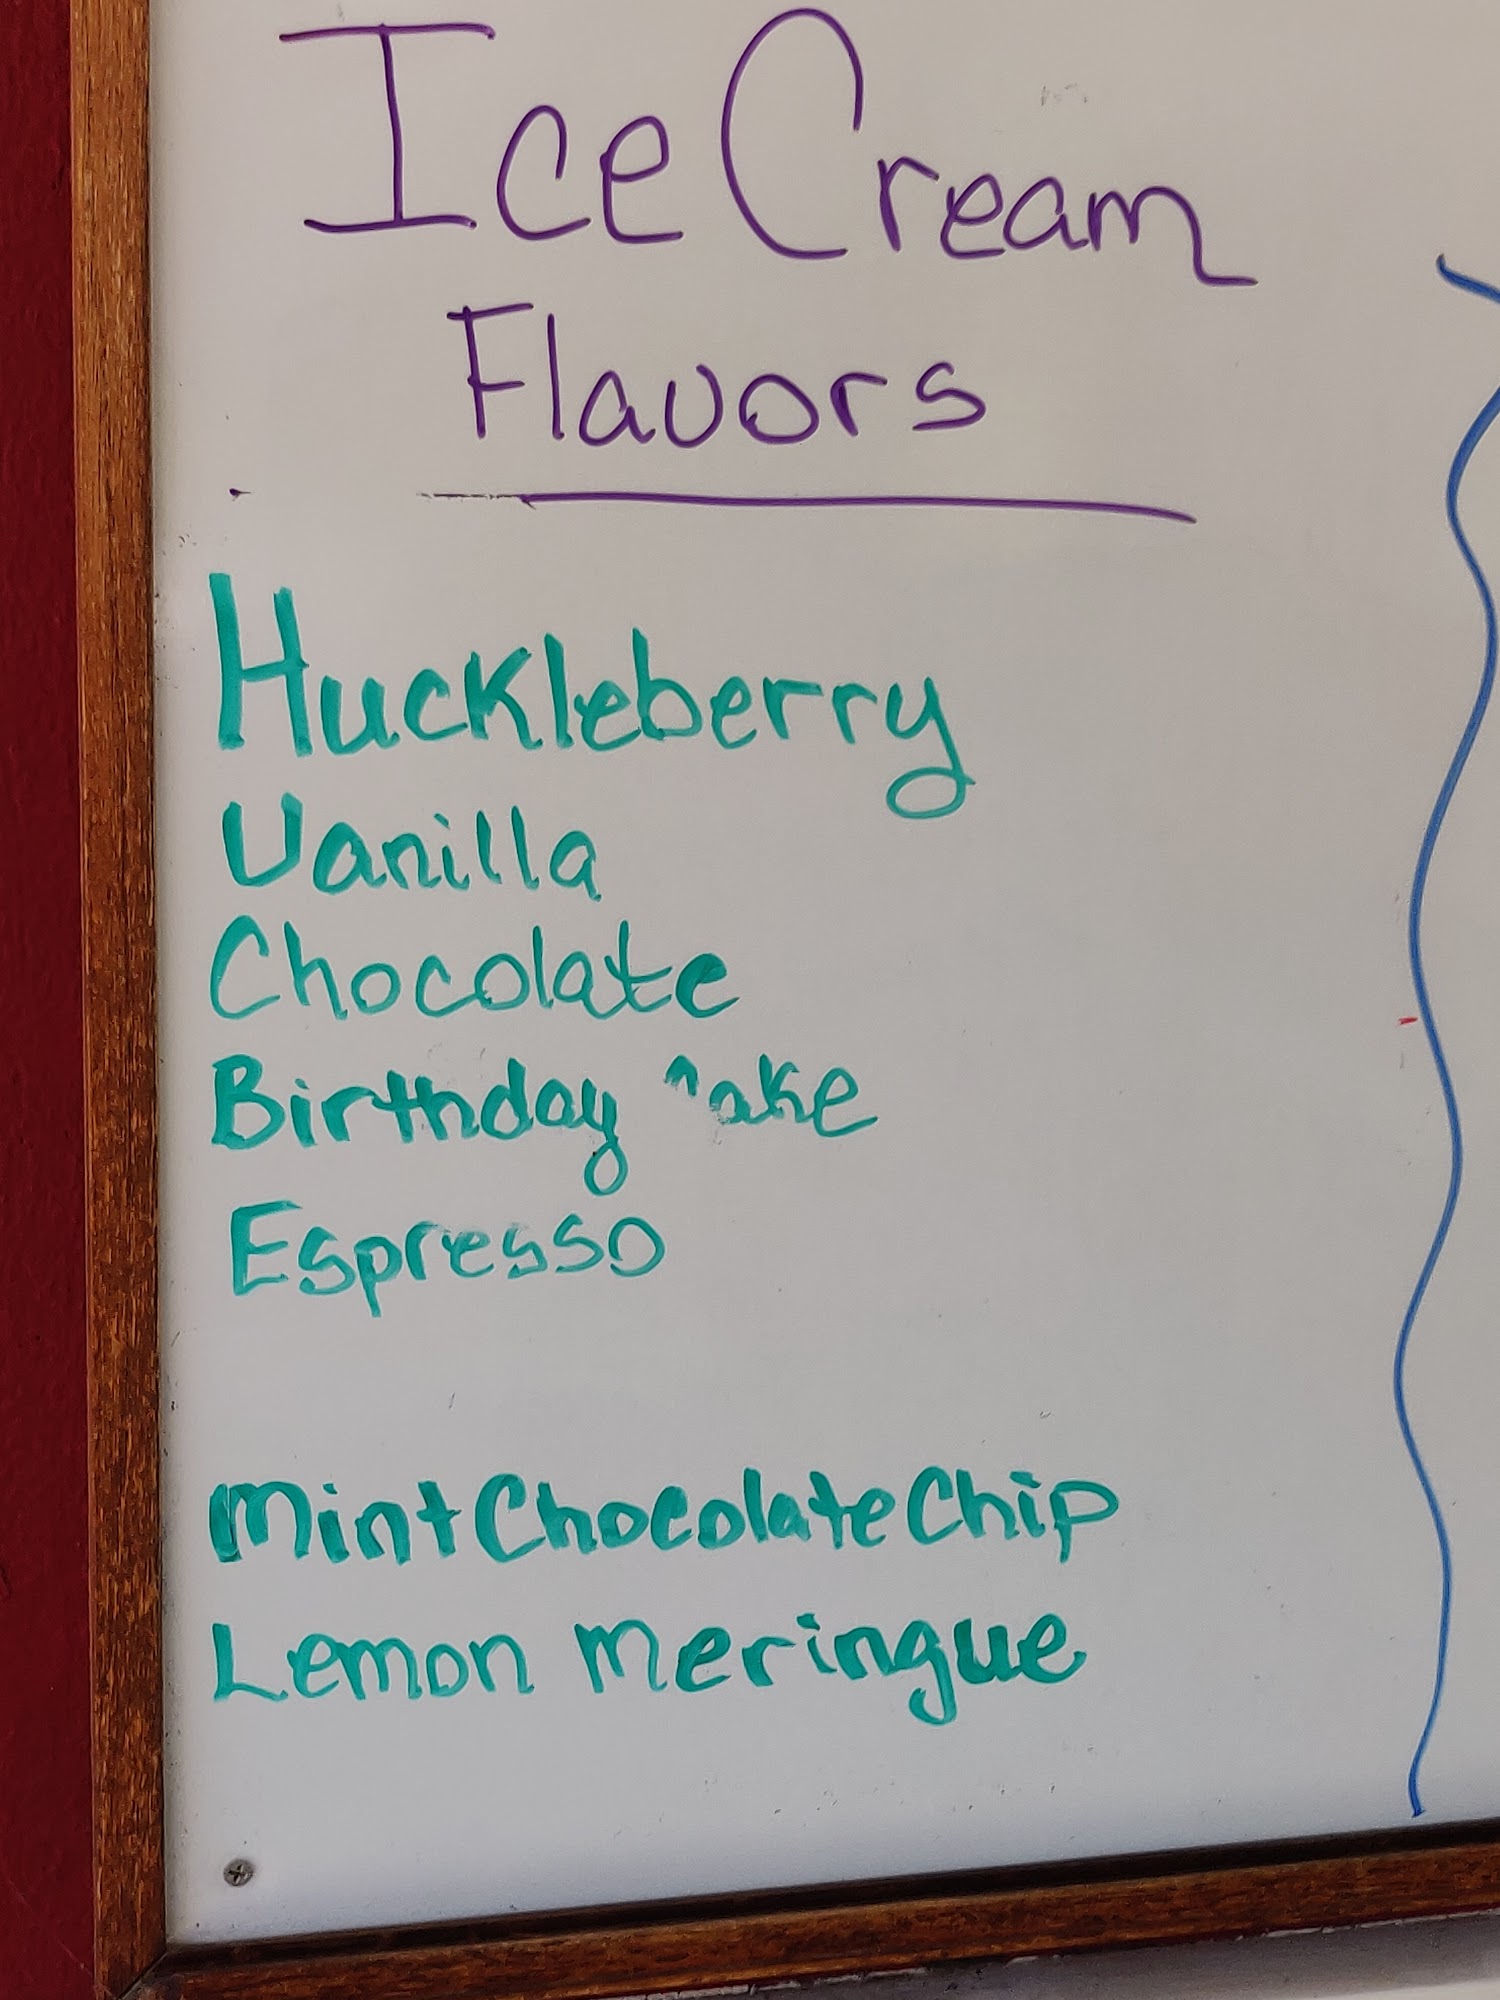 Ice Cream
Flavors
Huckleberry
Vanilla
Chocolate
Birthday Cake
Espresso
Mint Chocolate Chip
Lemon Meringue